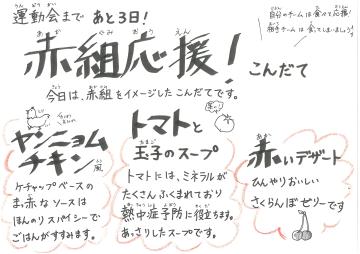 運動会まで あと3日!
自分のチームは食べて応援!
相手チームは食してしまいましょう。
赤組応援! こんだて
今日は、赤組をイメージしたこんだてです。
ヤンニョム
チキン風
ケチャップベースの
まっ赤なソースは
ほんのりスパイシーで
ごはんがすすみます。
トマトと
玉子のスープ
トマトには、ミネラルが
たくさんふくまれており
熱中症予防に役立ちます。
あっさりしたスープです。
赤いデザート
ひんやりおいしい
さくらんぼゼリーです